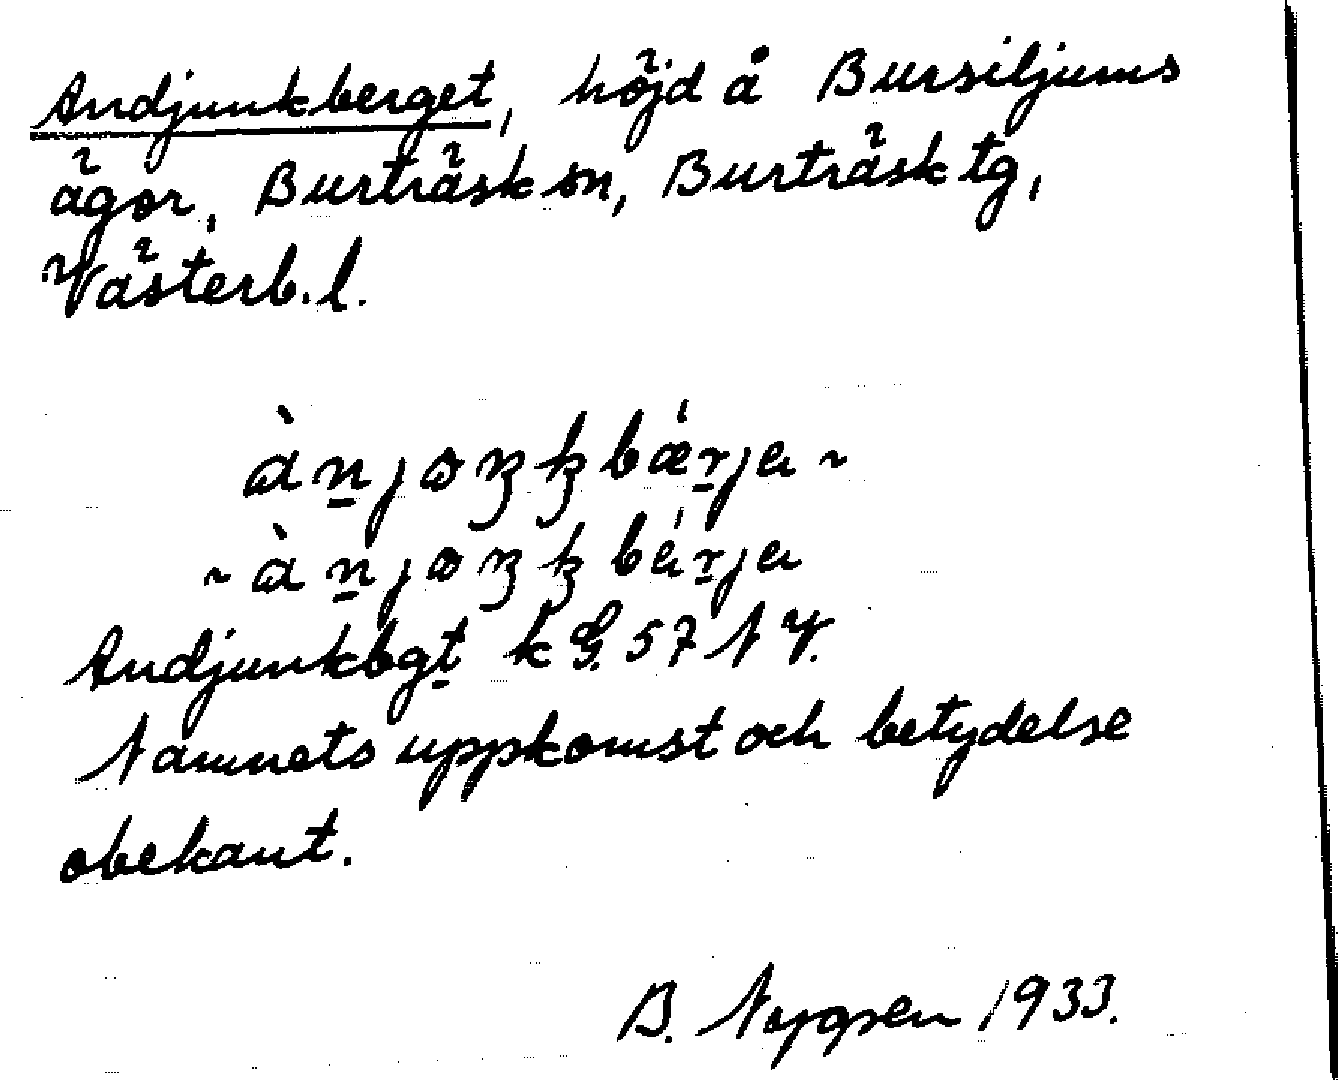 Andjunkberget, höjd å Bursiljums
ägor, Burträsk sn, Burträsk tg,
Västerb. l.
Andjunkbgt k G. 57 N V.
Namnets uppkomst och betydelse
obekant.
B. 1933.